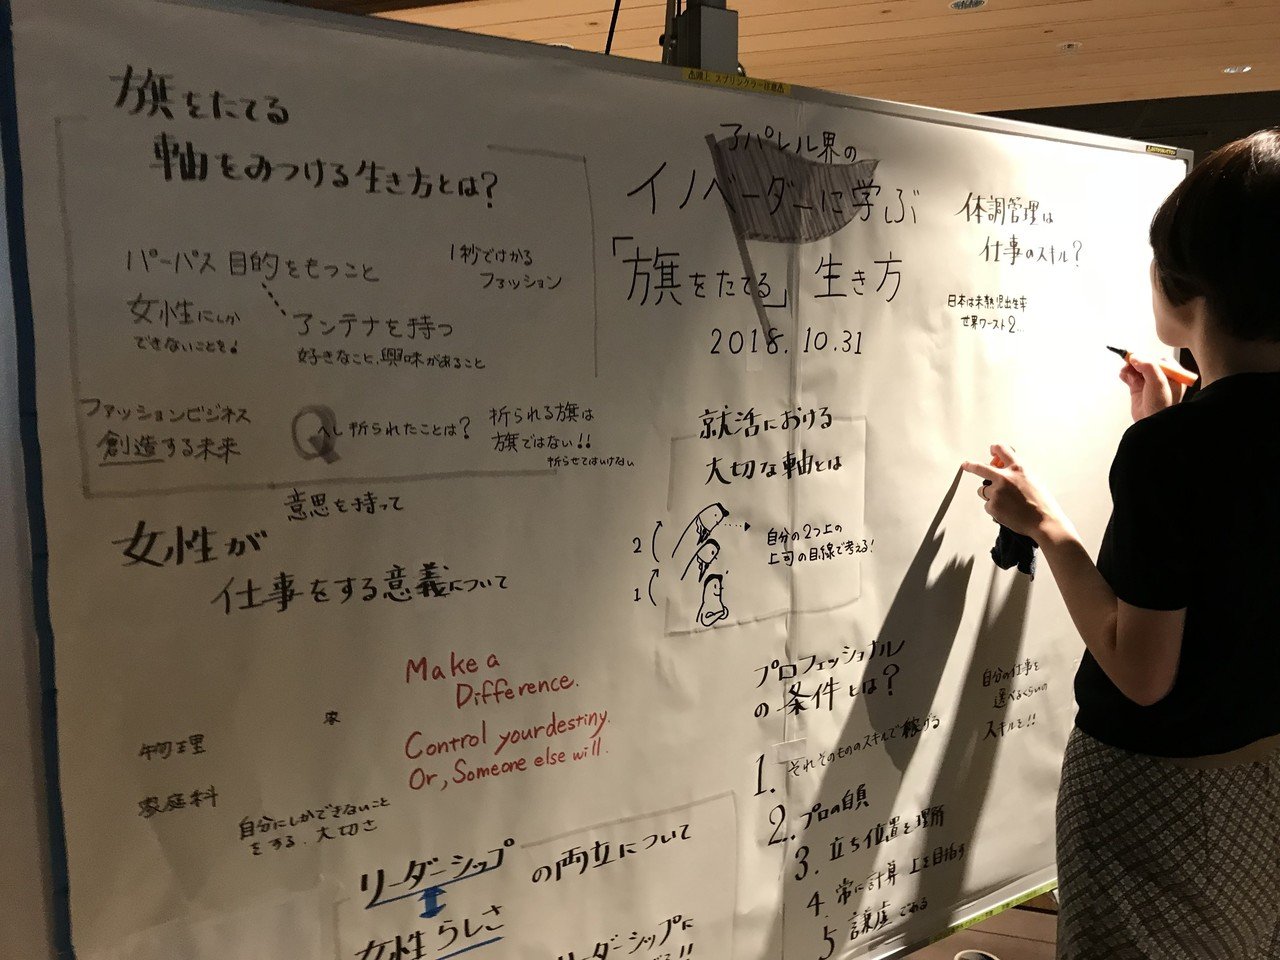 旗をたてる
軸をみつける生き方とは?
パーパス 目的をもつこと
1秒でわかる
ファッション
女性にしか
できないことを!
アンテナを持つ
好きなこと、興味があること
ファッションビジネス
創造する未来
Q へし折られたことは?
折られる旗は
旗ではない!!
折らせてはいけない
意思を持って
女性が
仕事をする意義について
Make a
Difference.
Control your destiny.
Or, Someone else will.
家
物理
家庭科
自分にしかできないこと
をする、大切さ
リーダーシップ
の両立について
女性らしさ
リーダーシップに
アパレル界の
イノベーダーに学ぶ
「旗をたてる」生き方
2018.10.31
就活における
大切な軸とは
2
1
自分の2つ上の
上司の目線で考える!
プロフェッショナル
の条件とは?
1. それそのもののスキルで稼げる
2. プロの自負
3. 立ち位置を理解
4. 常に計算 上を目指す
5 謙虚である
体調管理は
仕事のスキル?
日本は未熟児出生率
世界ワースト2..
自分の仕事を
選べるくらいの
スキルを!!
頭上 スプリンクラー注意